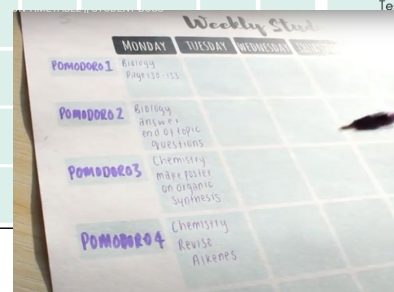 Te
N TIMETABLE || STUDENT BOSS
Weekly Stud
MONDAY TUESDAY WEDNESDAY
POMODORO 1 Biology
Page 130-133
POMODORO 2 Biology
answer
end of topic
questions
POMODORO3 Chemistry
make poster
on organic
synthesis
POMODORO 4 Chemistry
Revise
Alkenes